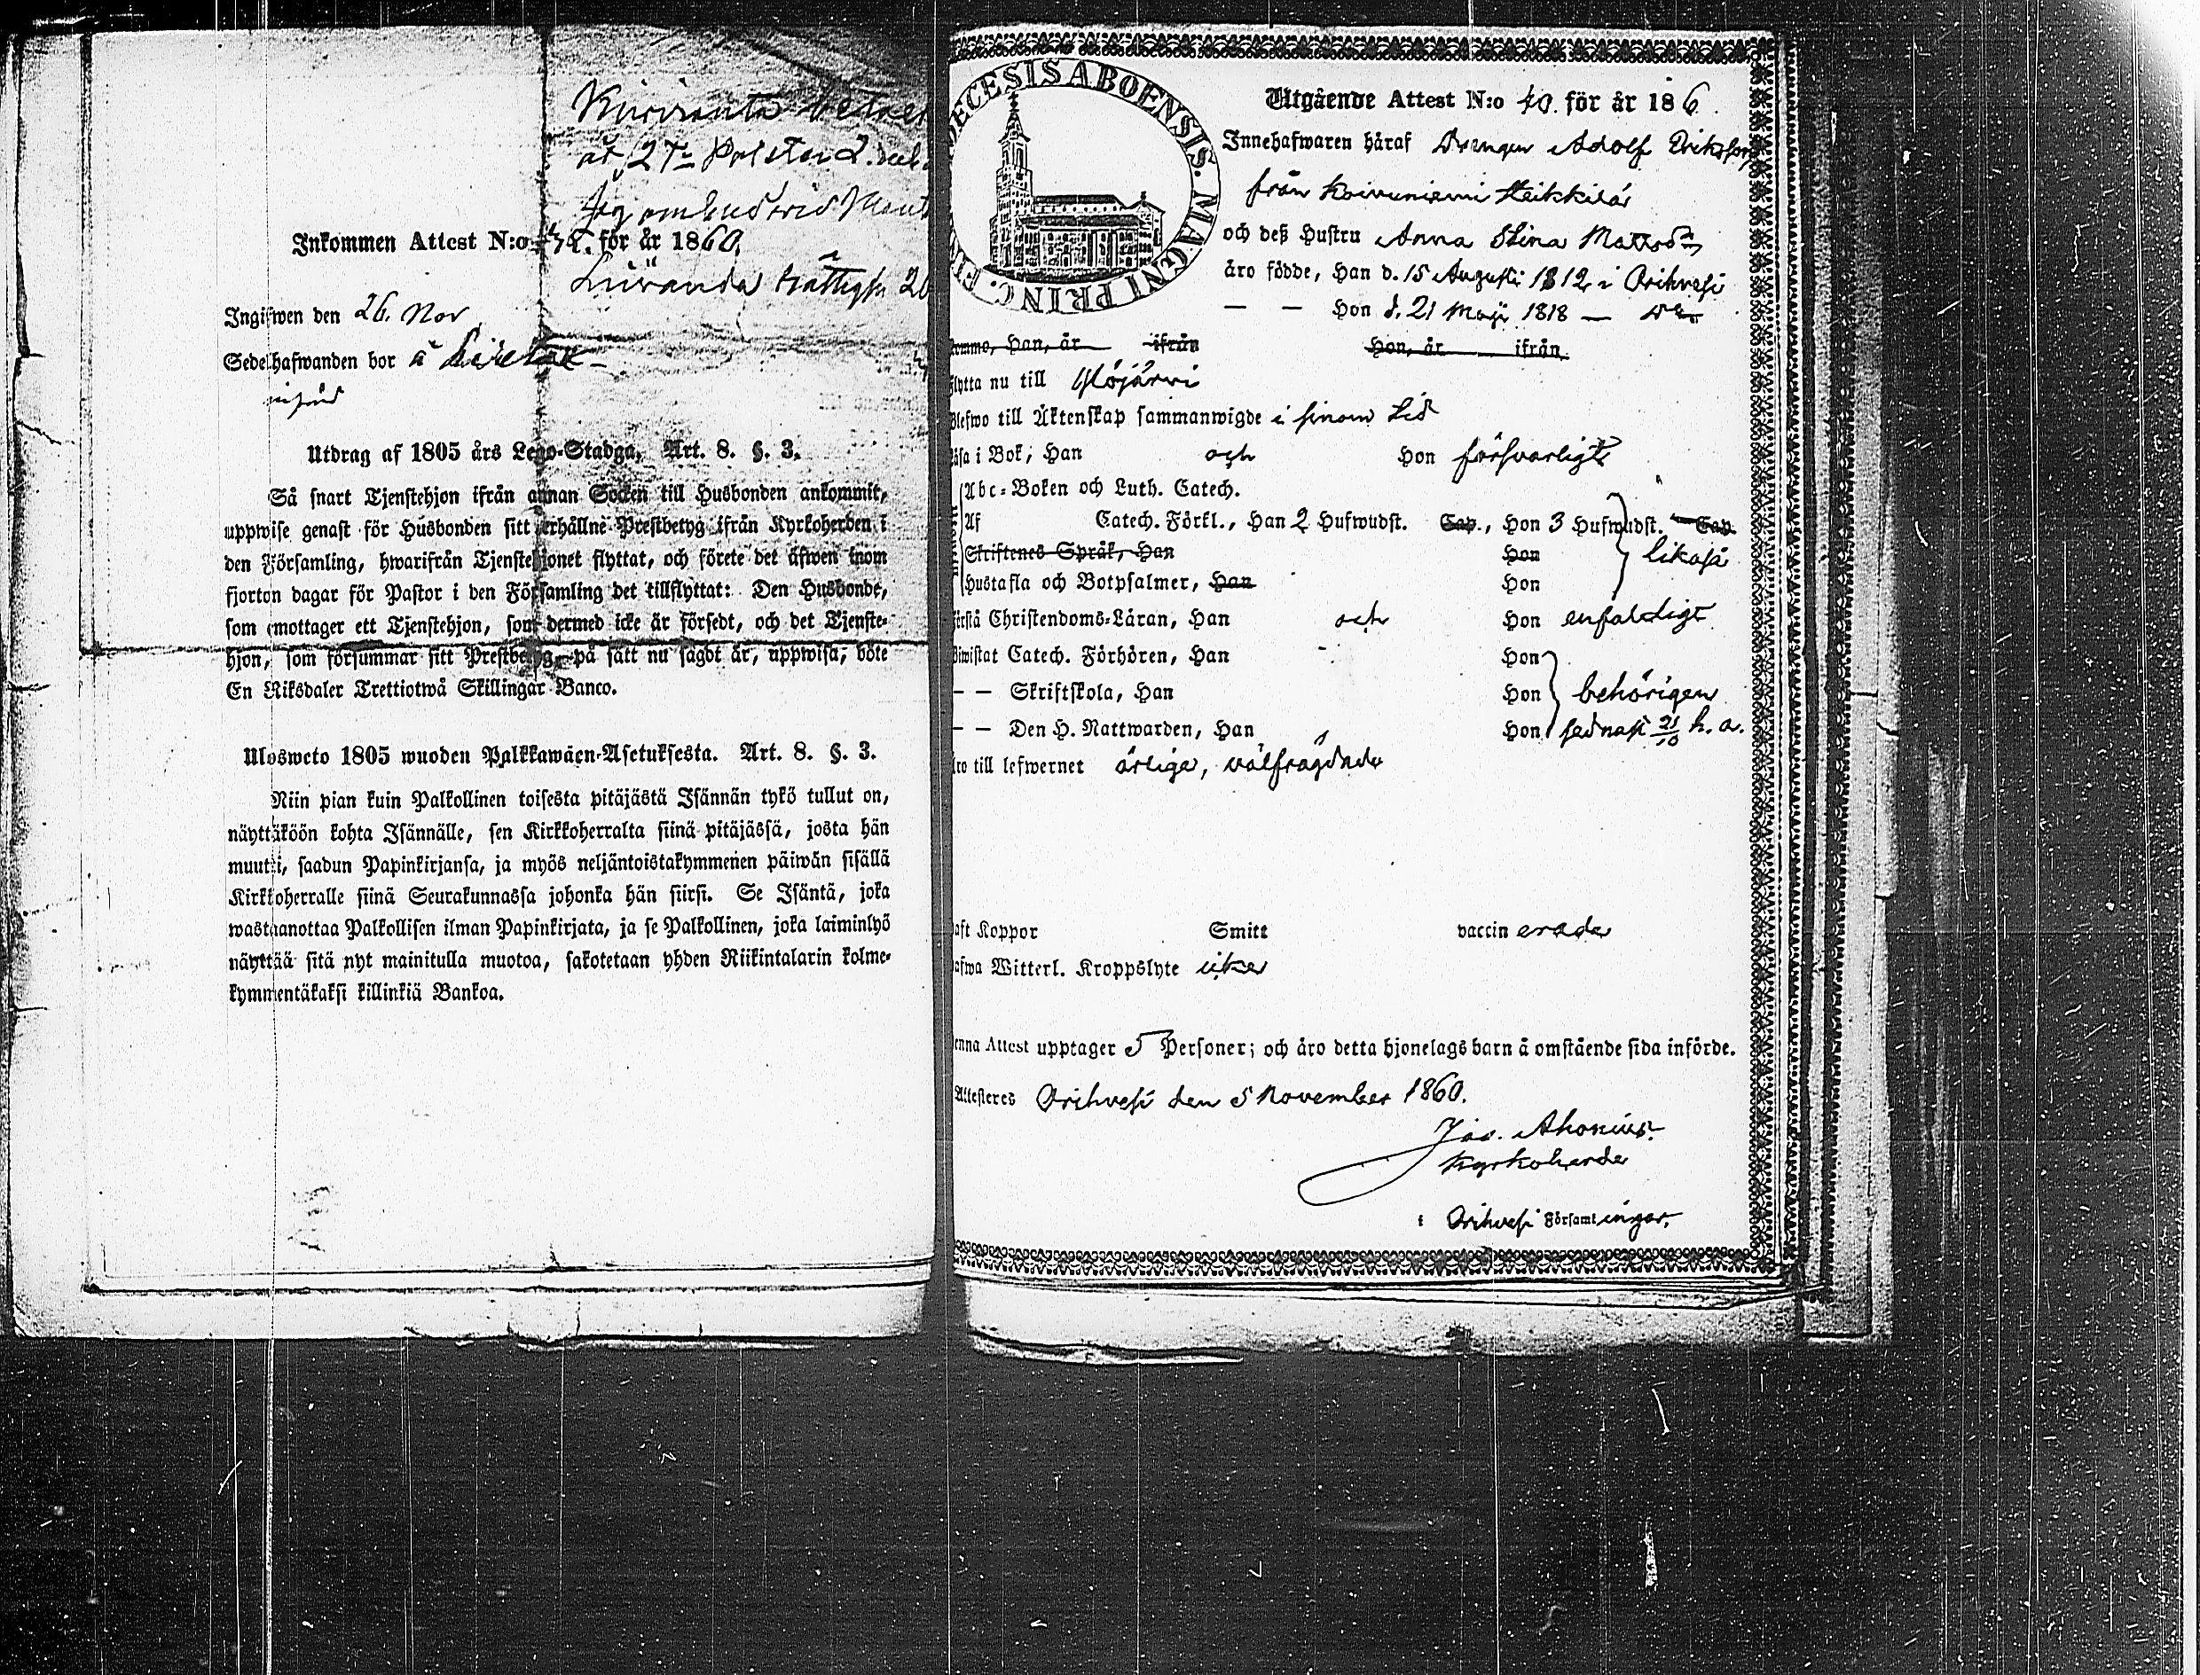 är 2
Inkommen Attest N:o för år 1860.
Ingifwen den 26. Nov
Sedelhafwanden bor å
Utdrag af 1805 års Lego-Stadga, Art. 8. §. 3.
Så snart Tjenstehjon ifrån annan Socken till Husbonden ankommit,
uppwise genast för Husbonden sitt erhållne Prestbetyg ifrån Kyrkoherden i
den Församling, hwarifrån Tjenstehjonet flyttat, och förete det äfwen inom
fjorton dagar för Pastor i den Församling det tillflyttat: Den Husbonde,
som emottager ett Tjenstehjon, som dermed icke är försedt, och det Tjenste-
hjon, som försummar sitt Prestbetyg, på sätt nu sagdt är, uppwisa, böte
En Riksdaler Trettiotwå Skillingar Banco.
Ulosweto 1805 wuoden Palkkawäen-Asetuksesta. Art. 8. §. 3.
Niin pian kuin Palkollinen toisesta pitäjästä Isännän tykö tullut on,
näyttäköön kohta Isännälle, sen Kirkkoherralta siinä pitäjässä, josta hän
muutti, saadun Papinkirjansa, ja myös neljäntoistakymmenen päiwän sisällä
Kirkkoherralle siinä Seurakunnassa johonka hän siirsi. Se Isäntä, joka
wastaanottaa Palkollisen ilman Papinkirjata, ja se Palkollinen, joka laiminlyö
näyttää sitä nyt mainitulla muotoa, sakotetaan yhden Riikintalarin kolme-
kymmentäkaksi killinkiä Bankoa.
DECESIS ABOENSIS. MAGNI PRINC.
Utgående Attest N:o 40. för år 186
Innehafwaren häraf Drängen Adolf Eriksson
från Koivuniemi Heikkilä
och deß Hustru Anna Stina Mattsdr
äro födde, Han d. 15 Augusti 1812 i Orihvesi
— — Hon d. 21 Maji 1818 —
komne, Han, år ifrån Hon, år ifrån
flytta nu till Ylöjärvi
Blefwo till Äktenskap sammanwigde i sinom tid
läsa i Bok, Han och Hon försvarligt
Abc-Boken och Luth. Catech.
Af Catech. Förkl., Han 2 Hufwudst. Cap., Hon 3 Hufwudst. Cap.
Skriftenes Språk, Han Hon likaså
Hustafla och Botpsalmer, Han Hon
förstå Christendoms-Läran, Han och Hon enfaldigt
biwistat Catech. Förhören, Han Hon
— — Skriftskola, Han Hon behörigen
— — Den H. Nattwarden, Han Hon sednast 21/10 h. a.
äro till lefwernet ärlige, välfrägdade
haft Koppor Smitt vaccinerade
hafwa Witterl. Kroppslyte icke
Denna Attest upptager 5 Personer; och äro detta hjonelags barn å omstående sida införde.
Attesteres Orihvesi den 5 November 1860.
Jos. Ahonius.
Kyrkoherde
i Orihvesi Församlingar.